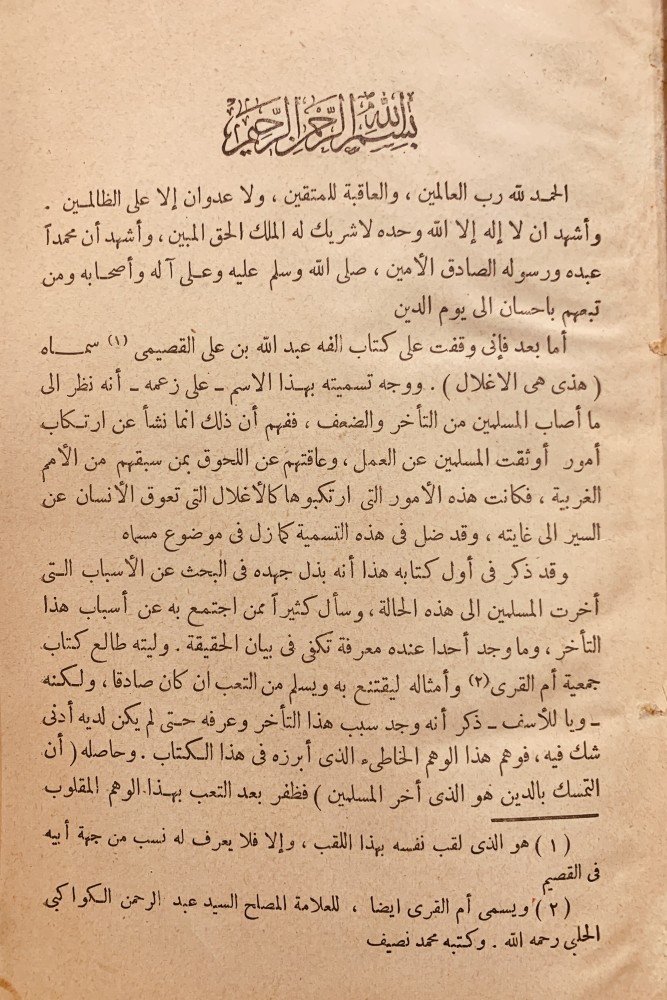 بسم الله الرحمن الرحيم
الحمد لله رب العالمين ، والعاقبة للمتقين ، ولا عدوان إلا على الظالمين .
وأشهد ان لا إله إلا الله وحده لا شريك له الملك الحق المبين ، وأشهد أن محمداً
عبده ورسوله الصادق الأمين ، صلى الله وسلم عليه وعلى آله وأصحابه ومن
تبعهم باحسان الى يوم الدين
أما بعد فإنى وقفت على كتاب ألفه عبد الله بن على القصيمى (١) سماه
( هذى هى الاغلال ) . ووجه تسميته بهذا الاسم ـ على زعمه ـ أنه نظر الى
ما أصاب المسلمين من التأخر والضعف ، ففهم أن ذلك انما نشأ عن ارتكاب
أمور أوثقت المسلمين عن العمل ، وعاقتهم عن اللحوق بمن سبقهم من الأمم
الغربية ، فكانت هذه الأمور التى ارتكبوها كالأغلال التى تعوق الأنسان عن
السير الى غايته ، وقد ضل فى هذه التسمية كما زل فى موضوع مسماه
وقد ذكر فى أول كتابه هذا أنه بذل جهده فى البحث عن الأسباب التى
أخرت المسلمين الى هذه الحالة ، وسأل كثيراً ممن اجتمع به عن أسباب هذا
التأخر ، وما وجد أحدا عنده معرفة تكفى فى بيان الحقيقة . وليته طالع كتاب
جمعية أم القرى (٢) وأمثاله ليقتنع به ويسلم من التعب ان كان صادقا ، ولكنه
ـ ويا للأسف ـ ذكر أنه وجد سبب هذا التأخر وعرفه حتى لم يكن لديه أدنى
شك فيه ، فوهم هذا الوهم الخاطىء الذى أبرزه فى هذا الكتاب . وحاصله ( أن
التمسك بالدين هو الذى أخر المسلمين ) فظفر بعد التعب بهذا الوهم المقلوب
( ١ ) هو الذى لقب نفسه بهذا اللقب ، وإلا فلا يعرف له نسب من جهة أبيه
فى القصيم
( ٢ ) ويسمى أم القرى ايضا ، للعلامة المصلح السيد عبد الرحمن الكواكبى
الحلبى رحمه الله . وكتبه محمد نصيف